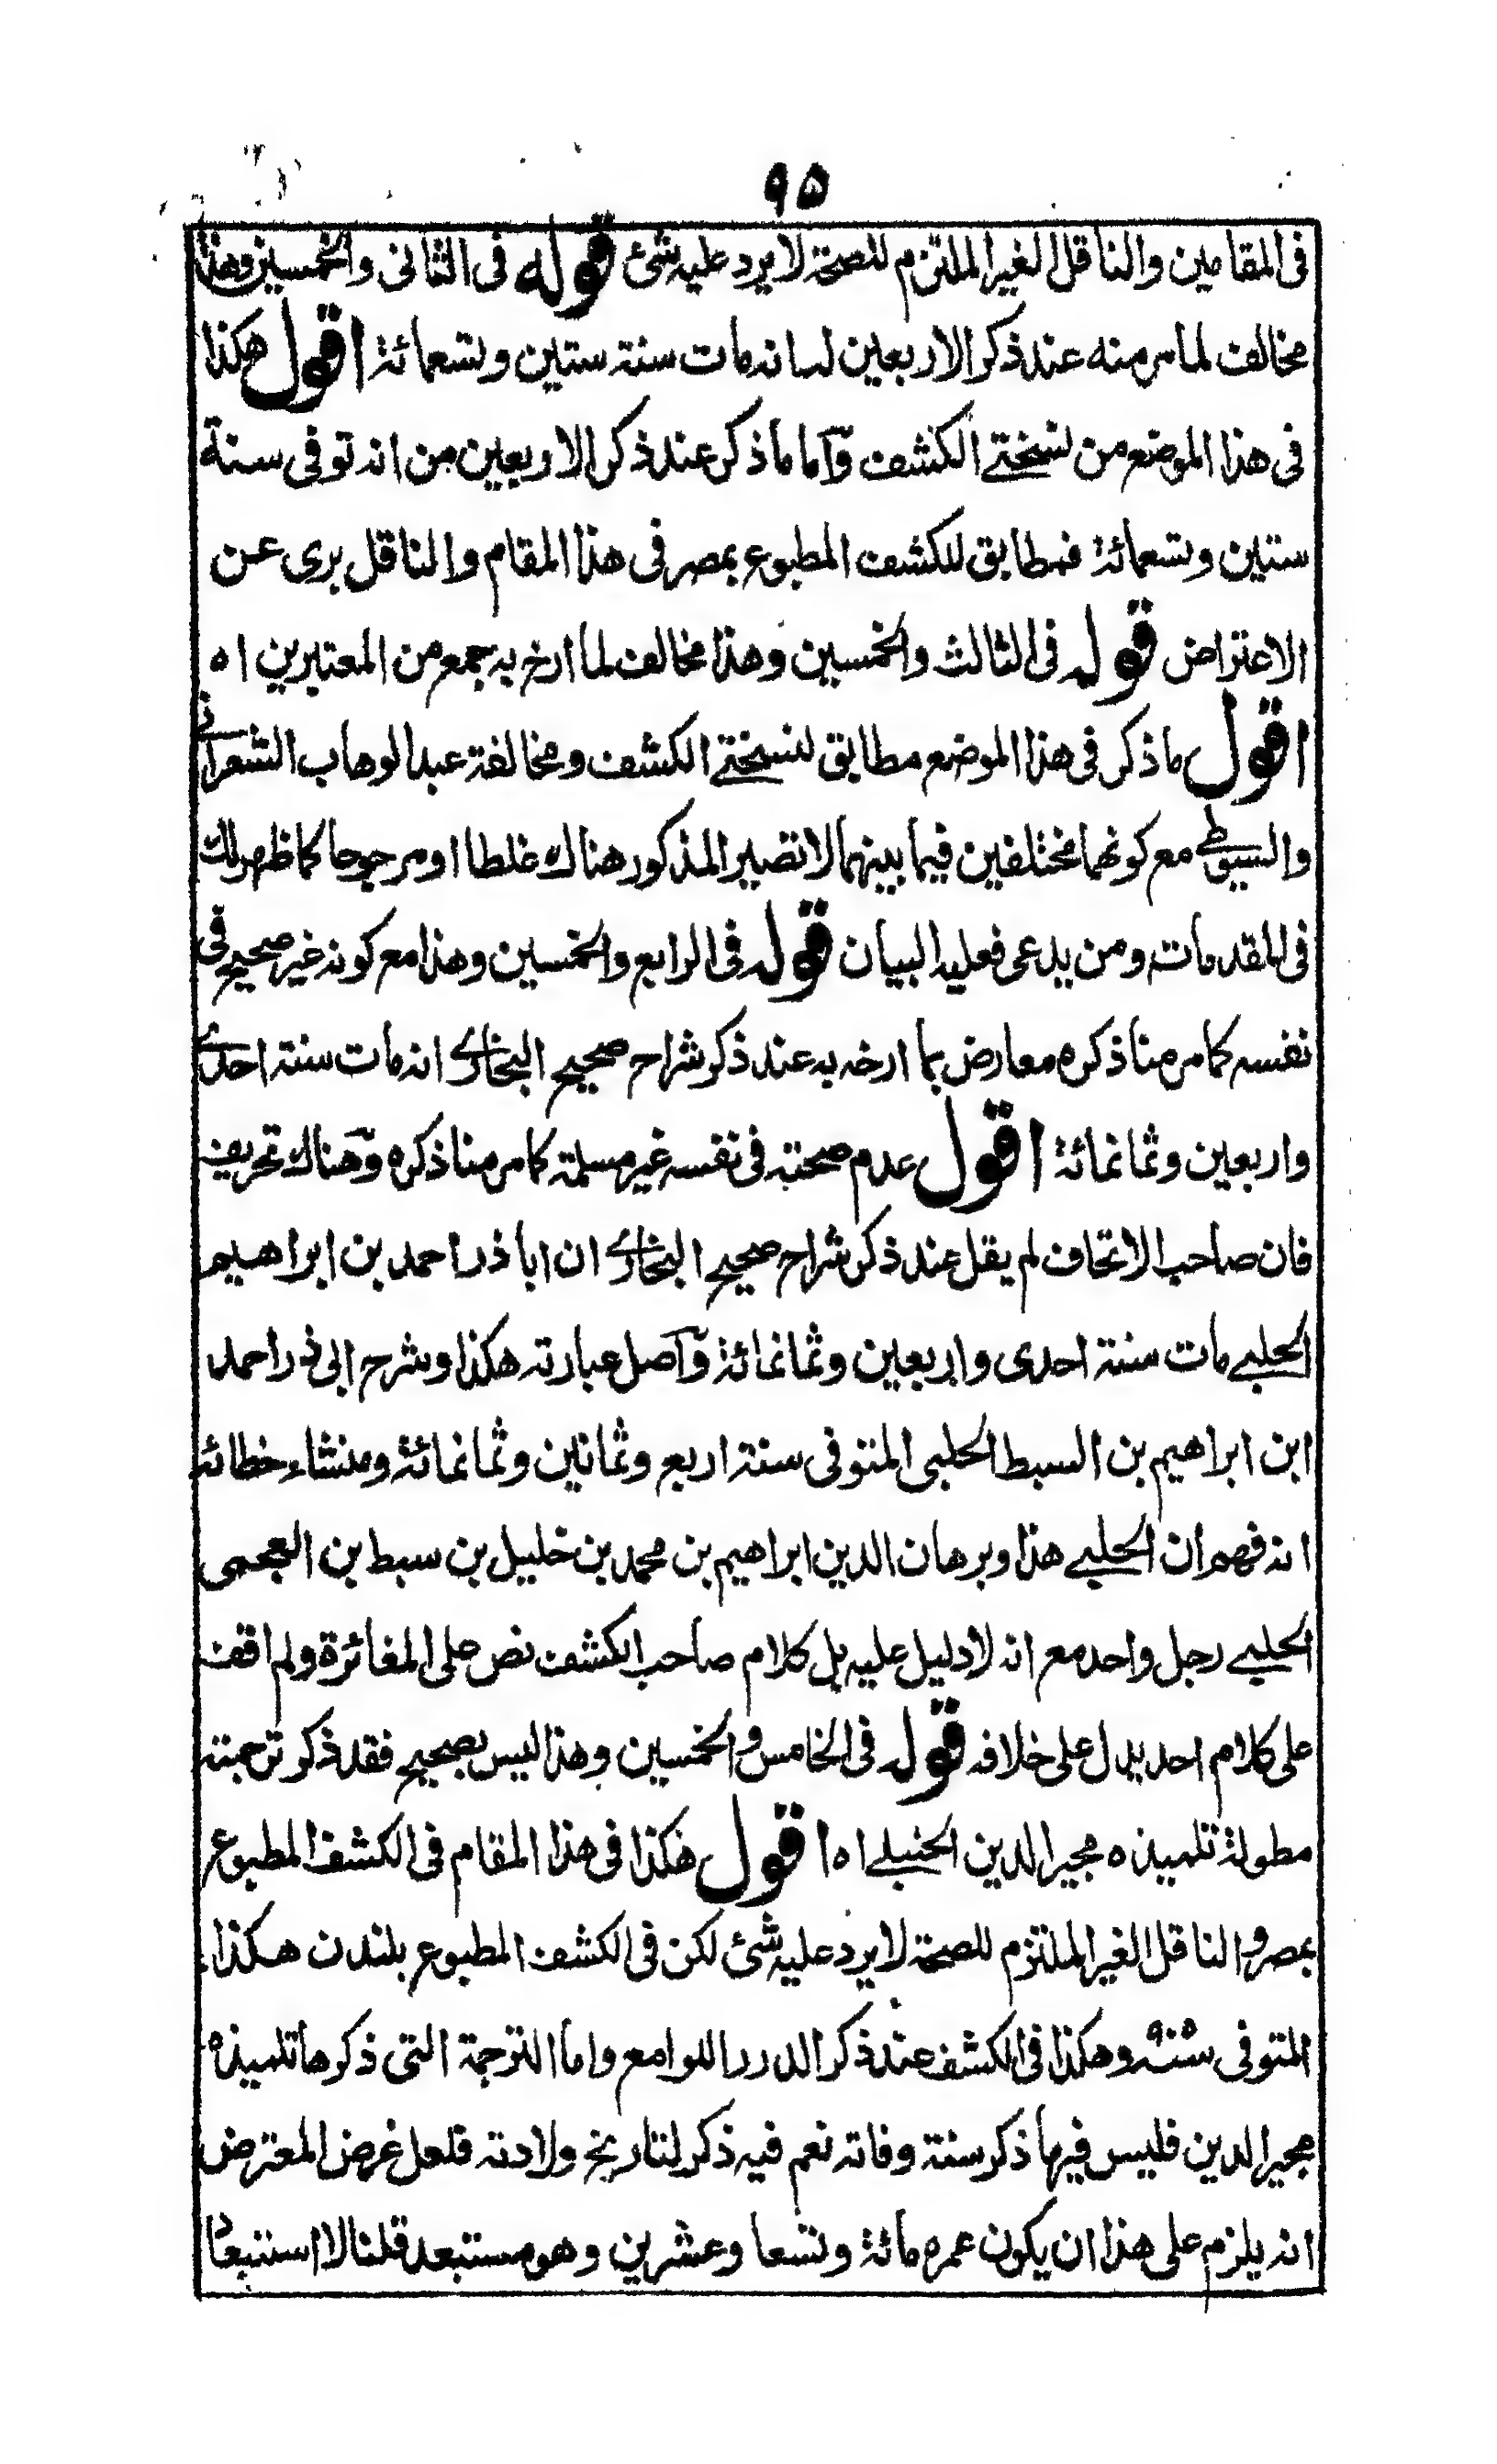 ٩٥
فى المقامين والناقل الغير الملتزم للصحة لا يرد عليه شئ قوله فى الثانى والخمسين وهذا
مخالف لما مر منه عند ذكر الاربعين لسانه مات سنة ستين وتسعمائة اقول هكذا
فى هذا الموضع من نسختے الكشف وآما ما ذكر عند ذكر الاربعين من انه توفى سنة
ستين وتسعمائة فمطابق للكشف المطبوع بمصر فى هذا المقام والناقل برى عن
الاعتراض قوله فى الثالث والخمسين وهذا مخالف لما ارخ به جمع من المعتبرين اه
اقول ما ذكر فى هذا الموضع مطابق لنسختے الكشف ومخالفة عبد الوهاب الشعرانے
والسيوطے مع كونهما مختلفين فيما بينهما لا تصير المذكور هناك غلطا او مرجوحا كما ظهر لك
فى المقدمات ومن يدعى فعليه البيان قوله فى الرابع والخمسين وهذا مع كونه غير صحيح فى
نفسه كما مر منا ذكره معارض بما ارخه به عند ذكر شراح صحيح البخارے انه مات سنة احدے
واربعين وثمانمائة اقول عدم صحته فى نفسه غير مسلمة كما مر منا ذكره وهناك تحريف
فان صاحب الاتحاف لم يقل عند ذكر شراح صحيح البخارے ان ابا ذر احمد بن ابراهيم
الحلبے مات سنة احدى واربعين وثمانمائة وآصل عبارته هكذا وشرح ابى ذر احمد
ابن ابراهيم بن السبط الحلبى المتوفى سنة اربع وثمانين وثمانمائة ومنشاء خطائه
انه فهم ان الحلبے هذا وبرهان الدين ابراهيم بن محمد بن خليل بن سبط بن العجمى
الحلبے رجل واحد مع انه لا دليل عليه بل كلام صاحب الكشف نص على المغائرة ولم اقف
على كلام احد يدل على خلافه قوله فى الخامس والخمسين وهذا ليس بصحيح فقد ذكر ترجمته
مطولة تلميذه مجير الدين الحنبلے اه اقول هكذا فى هذا المقام فى الكشف المطبوع
بمصر والناقل الغير الملتزم للصحة لا يرد عليه شئ لكن فى الكشف المطبوع بلندن هكذا
المتوفى سنة وهكذا فى الكشف عند ذكر الدرر اللوامع واما الترجمة التى ذكرها تلميذه
مجير الدين فليس فيها ذكر سنة وفاته نعم فيه ذكر لتاريخ ولادته فلعل غرض المعترض
انه يلزم على هذا ان يكون عمره مائة وتسعا وعشرين وهو مستبعد قلنا لا استبعاد